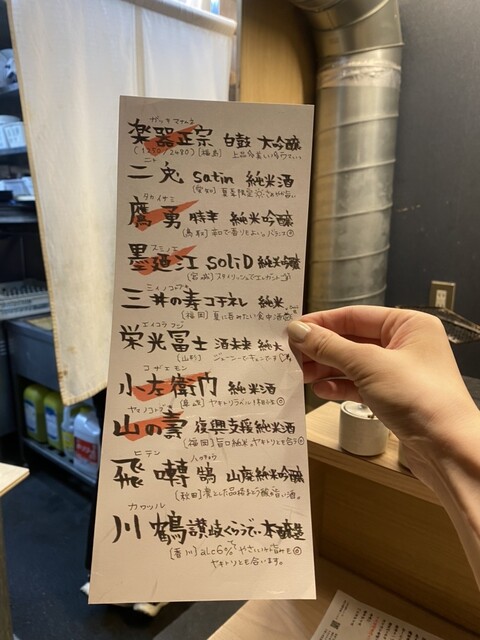 ガッキマサムネ
楽器正宗 白鼓 大吟醸
[福島]
ニト
二兎 satin 純米酒
[愛知] 夏季限定
タカイサミ
鷹勇 純米吟醸
[鳥取] 辛口で香りもよい。バランス◎
スミノエ
墨廼江 SOLID 純米吟醸
[宮城] スタイリッシュでエレガント
ミイノコトブキ
三井の寿 コチネレ 純米
[福岡] 夏に呑めたい食中酒◎
エイコウフジ
栄光冨士 酒未来 純大
[山形] ジューシーでキュンです
コザエモン
小左衛門 純米酒
[岐阜] ヤキトリラベル!相性◎
ヤマノコトブキ
山の壽 復興支援純米酒
[福岡] 旨口純米。ヤキトリとも合う◎
ヒテン ハクチョウ
飛囀 鵠 山廃純米吟醸
[秋田] 凛とした品格
カワツル
川鶴 讃岐くらうでぃ 本醸造
[香川] alc6%で やさしい
ヤキトリとも合います。